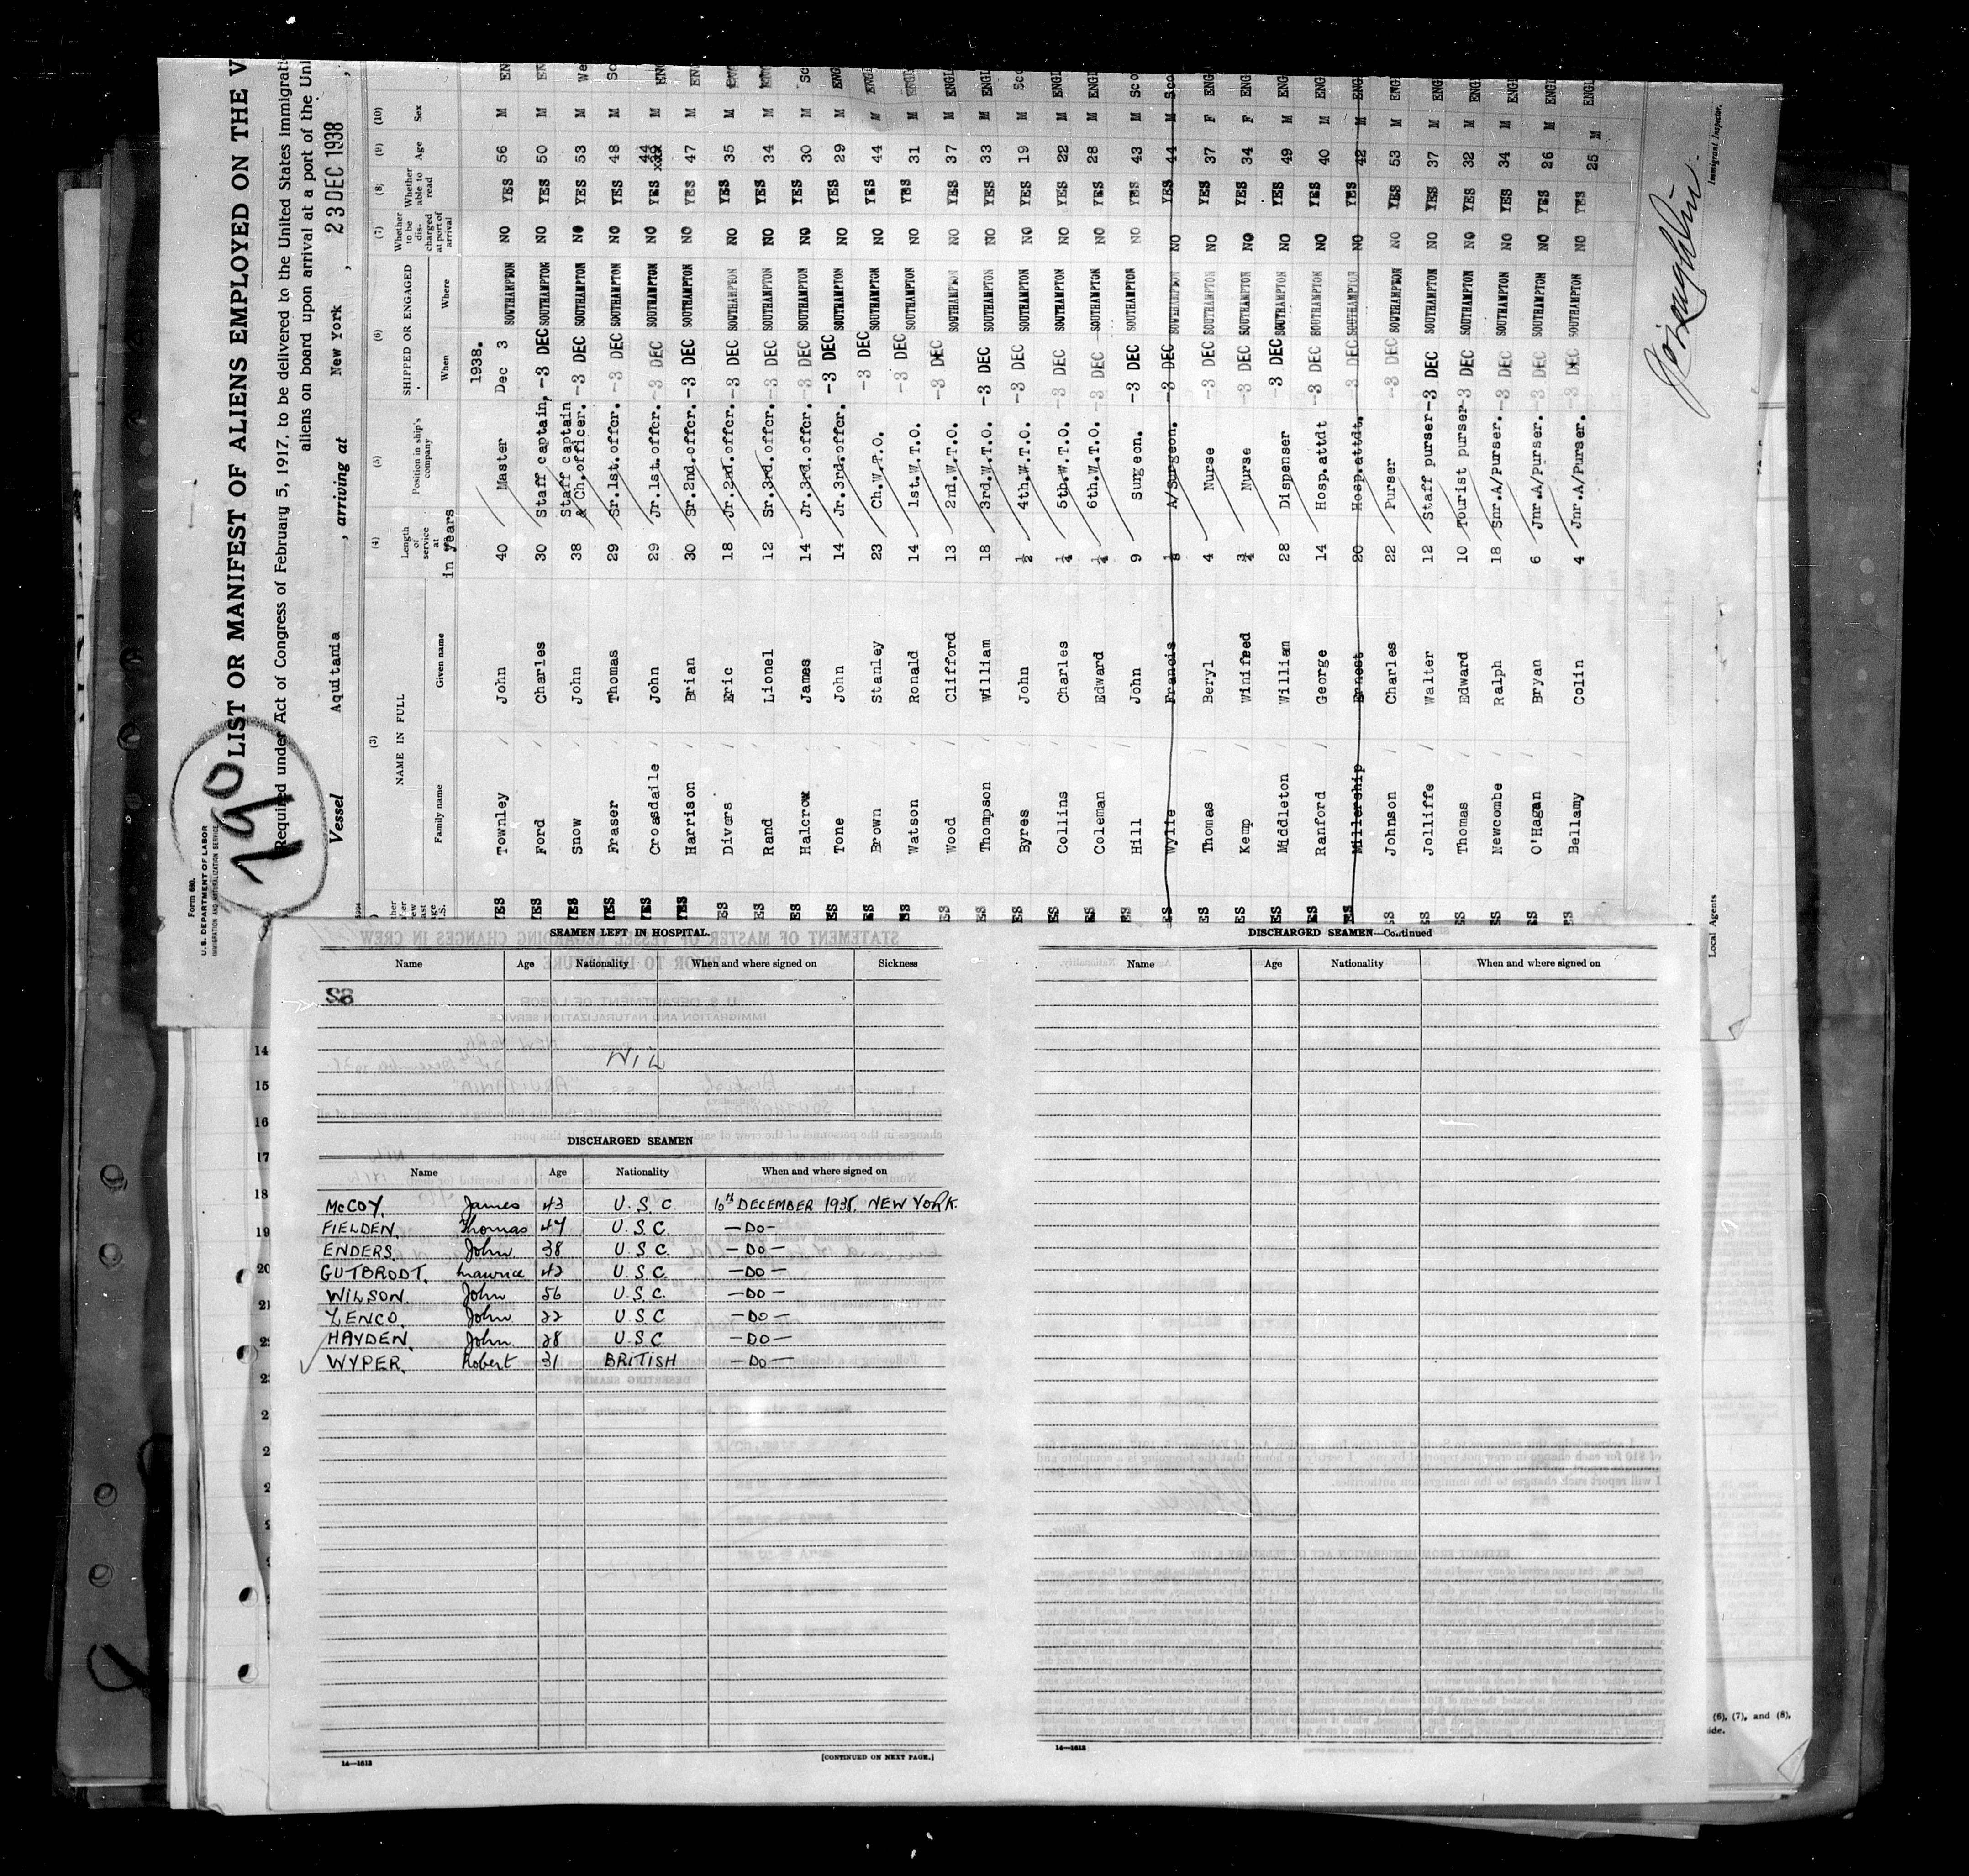 Form 680.
U.S. DEPARTMENT OF LABOR
IMMIGRATION AND NATURALIZATION SERVICE
190
LIST OR MANIFEST OF ALIENS EMPLOYED ON THE V
Required under Act of Congress of February 5, 1917, to be delivered to the United States immigrati
aliens on board upon arrival at a port of the Uni
Vessel Aquitania , arriving at New York , 23 DEC 1938 ,
(3) (4) (5) (6) (7) (8) (9) (10)
NAME IN FULL Length of service at in years Position in ship's company SHIPPED OR ENGAGED Whether to be discharged at port of arrival Whether able to read Age Sex
Family name Given name When Where
1938.
YES Townley John 40 Master Dec 3 SOUTHAMPTON NO YES 56 M EN
YES Ford Charles 30 Staff captain, -3 DEC SOUTHAMPTON NO YES 50 M EN
YES Snow John 38 Staff captain & Ch.officer. -3 DEC SOUTHAMPTON NO YES 53 M We
YES Fraser Thomas 29 Sr.1st.offcr. -3 DEC SOUTHAMPTON NO YES 48 M Sc
YES Croasdaile John 29 Jr.1st.offcr. -3 DEC SOUTHAMPTON NO YES 44 M ENG
YES Harrison Brian 30 Sr.2nd.offcr. -3 DEC SOUTHAMPTON NO YES 47 M ENG
ES Divers Eric 18 Jr.2nd.offcr. -3 DEC SOUTHAMPTON NO YES 35 M ENG
ES Rand Lionel 12 Sr.3rd.offcr. -3 DEC SOUTHAMPTON NO YES 34 M ENG
ES Halcrow James 14 Jr.3rd.offcr. -3 DEC SOUTHAMPTON NO YES 30 M Sc
ES Tone John 14 Jr.3rd.offcr. -3 DEC SOUTHAMPTON NO YES 29 M ENG
ES Brown Stanley 23 Ch.W.T.O. -3 DEC SOUTHAMPTON NO YES 44 M ENGL
ES Watson Ronald 14 1st.W.T.O. -3 DEC SOUTHAMPTON NO YES 31 M ENGL
ES Wood Clifford 13 2nd.W.T.O. -3 DEC SOUTHAMPTON NO YES 37 M ENGL
ES Thompson William 18 3rd.W.T.O. -3 DEC SOUTHAMPTON NO YES 33 M ENGL
ES Byres John ½ 4th.W.T.O. -3 DEC SOUTHAMPTON NO YES 19 M Sco
ES Collins Charles ¼ 5th.W.T.O. -3 DEC SOUTHAMPTON NO YES 22 M ENGL
ES Coleman Edward ¼ 6th.W.T.O. -3 DEC SOUTHAMPTON NO YES 28 M ENGL
ES Hill John 9 Surgeon. -3 DEC SOUTHAMPTON NO YES 43 M Sco
ES Wylie Francis A/Surgeon. -3 DEC SOUTHAMPTON NO YES 44 M Sco
ES Thomas Beryl 4 Nurse -3 DEC SOUTHAMPTON NO YES 37 F ENG
ES Kemp Winifred ¾ Nurse -3 DEC SOUTHAMPTON NO YES 34 F ENG
ES Middleton William 28 Dispenser -3 DEC SOUTHAMPTON NO YES 49 M ENGL
ES Ranford George 14 Hosp.attdt -3 DEC SOUTHAMPTON NO YES 40 M ENGL
ES Millership Ernest 20 Hosp.attdt. -3 DEC SOUTHAMPTON NO YES 42 M ENGL
ES Johnson Charles 22 Purser -3 DEC SOUTHAMPTON NO YES 53 M ENGL
ES Jolliffe Walter 12 Staff purser -3 DEC SOUTHAMPTON NO YES 37 M ENGL
ES Thomas Edward 10 Tourist purser -3 DEC SOUTHAMPTON NO YES 32 M ENGL
ES Newcombe Ralph 18 Snr.A/Purser. -3 DEC SOUTHAMPTON NO YES 34 M ENGL
ES O'Hagan Bryan 6 Jnr.A/Purser. -3 DEC SOUTHAMPTON NO YES 26 M ENGL
ES Bellamy Colin 4 Jnr.A/Purser. -3 DEC SOUTHAMPTON NO YES 25 M ENGL
Local Agents
Immigrant Inspector.
SEAMEN LEFT IN HOSPITAL.
Name Age Nationality When and where signed on Sickness
NIL
DISCHARGED SEAMEN
Name Age Nationality When and where signed on
McCOY, James 43 U.S.C. 10th DECEMBER 1938, NEW YORK.
FIELDEN, Thomas 47 U.S.C. —DO—
ENDERS, John 38 U.S.C. —DO—
GUTBRODT, Maurice 42 U.S.C. —DO—
WILSON, John 56 U.S.C. —DO—
YENCO, John 22 U.S.C —DO—
HAYDEN, John 28 U.S.C —DO—
WYPER, Robert 31 BRITISH —DO—
14—1613 [CONTINUED ON NEXT PAGE.]
DISCHARGED SEAMEN—Continued
Name Age Nationality When and where signed on
14—1613
14
15
16
17
18
19
20
21
(6), (7), and (8),
ide.